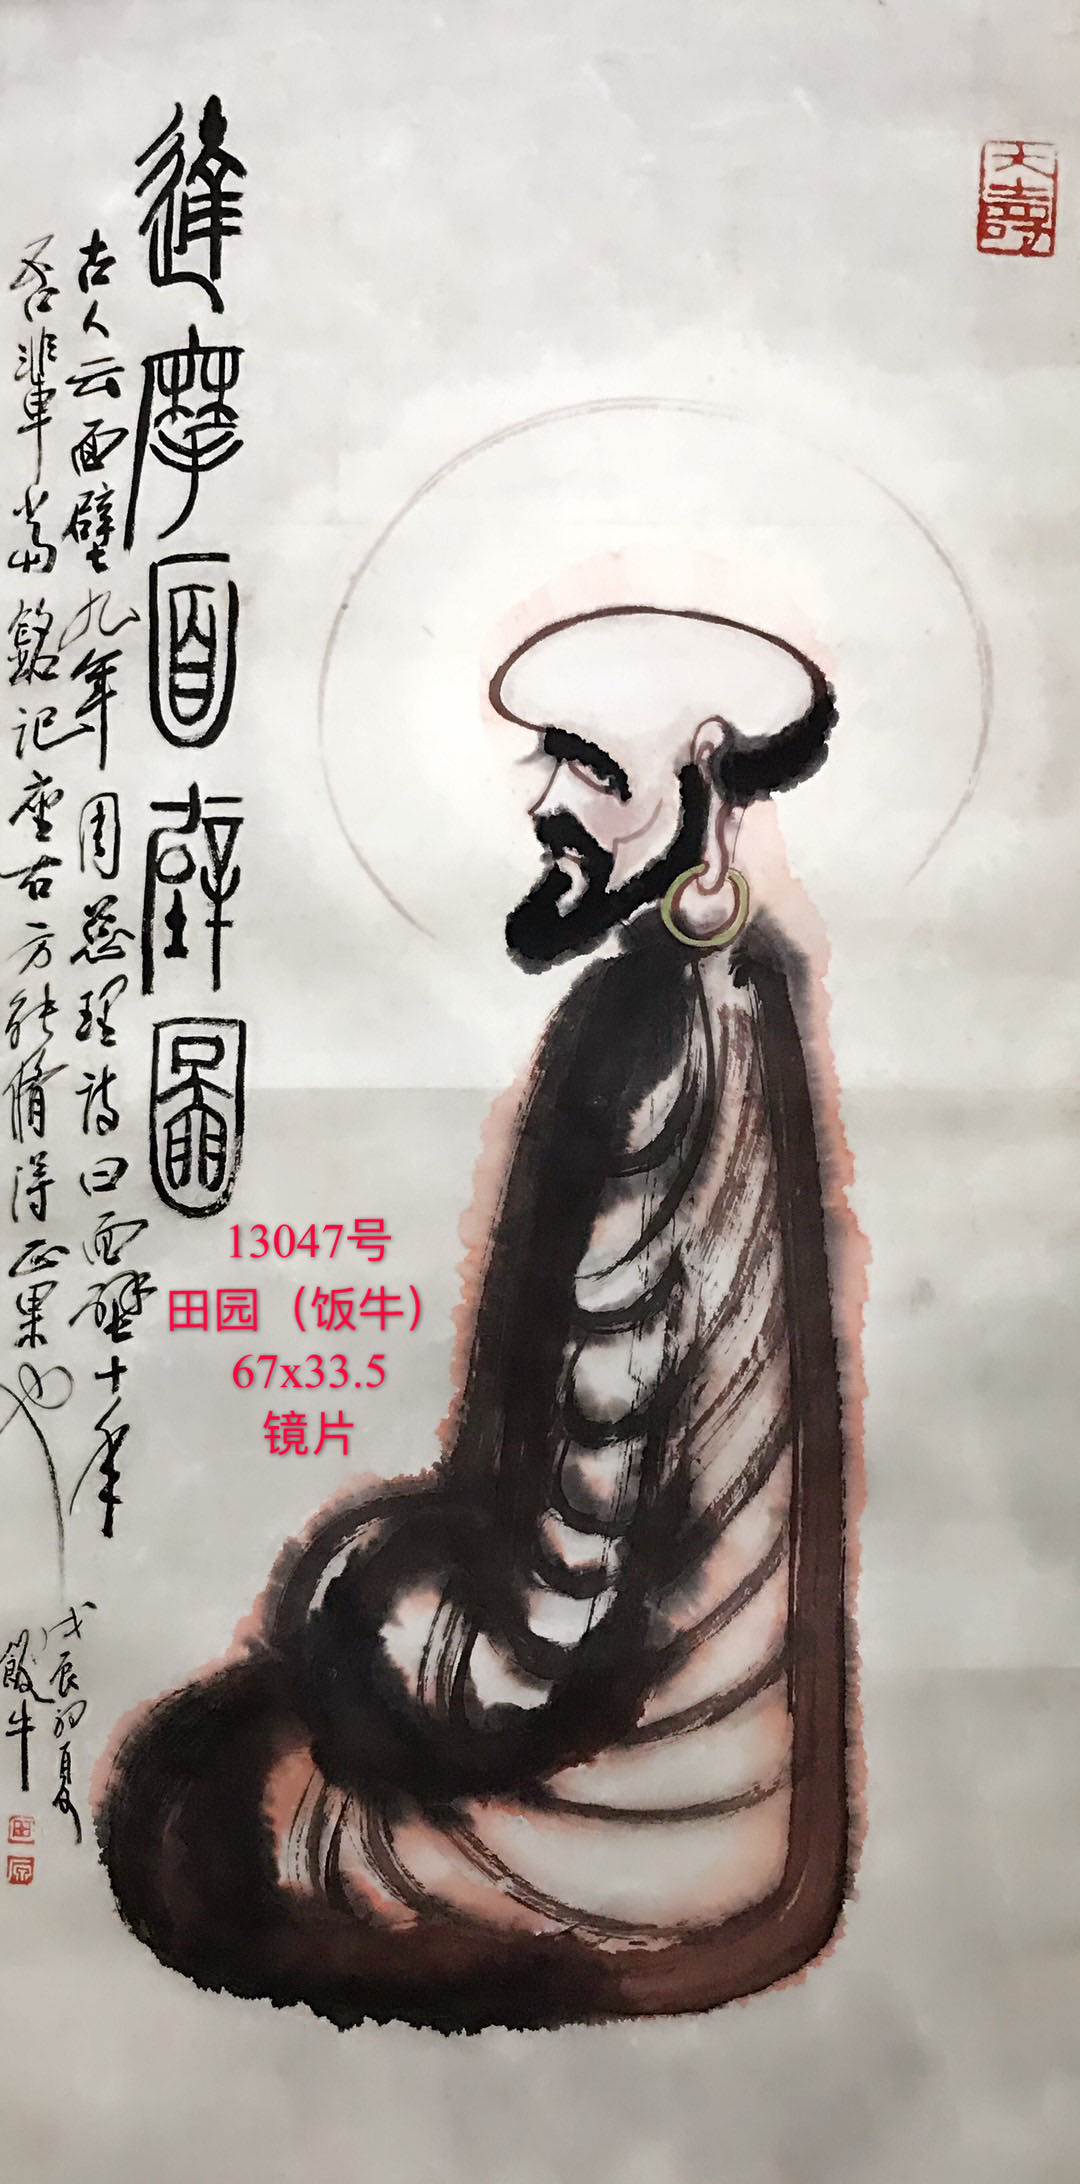 達摩面壁圖
古人云面壁九年周总理诗曰面壁十年
吾辈当铭记座右方能脩得正果也
戊辰初夏
飯牛
大壽
田
原
13047号
田园（饭牛）
67x33.5
镜片